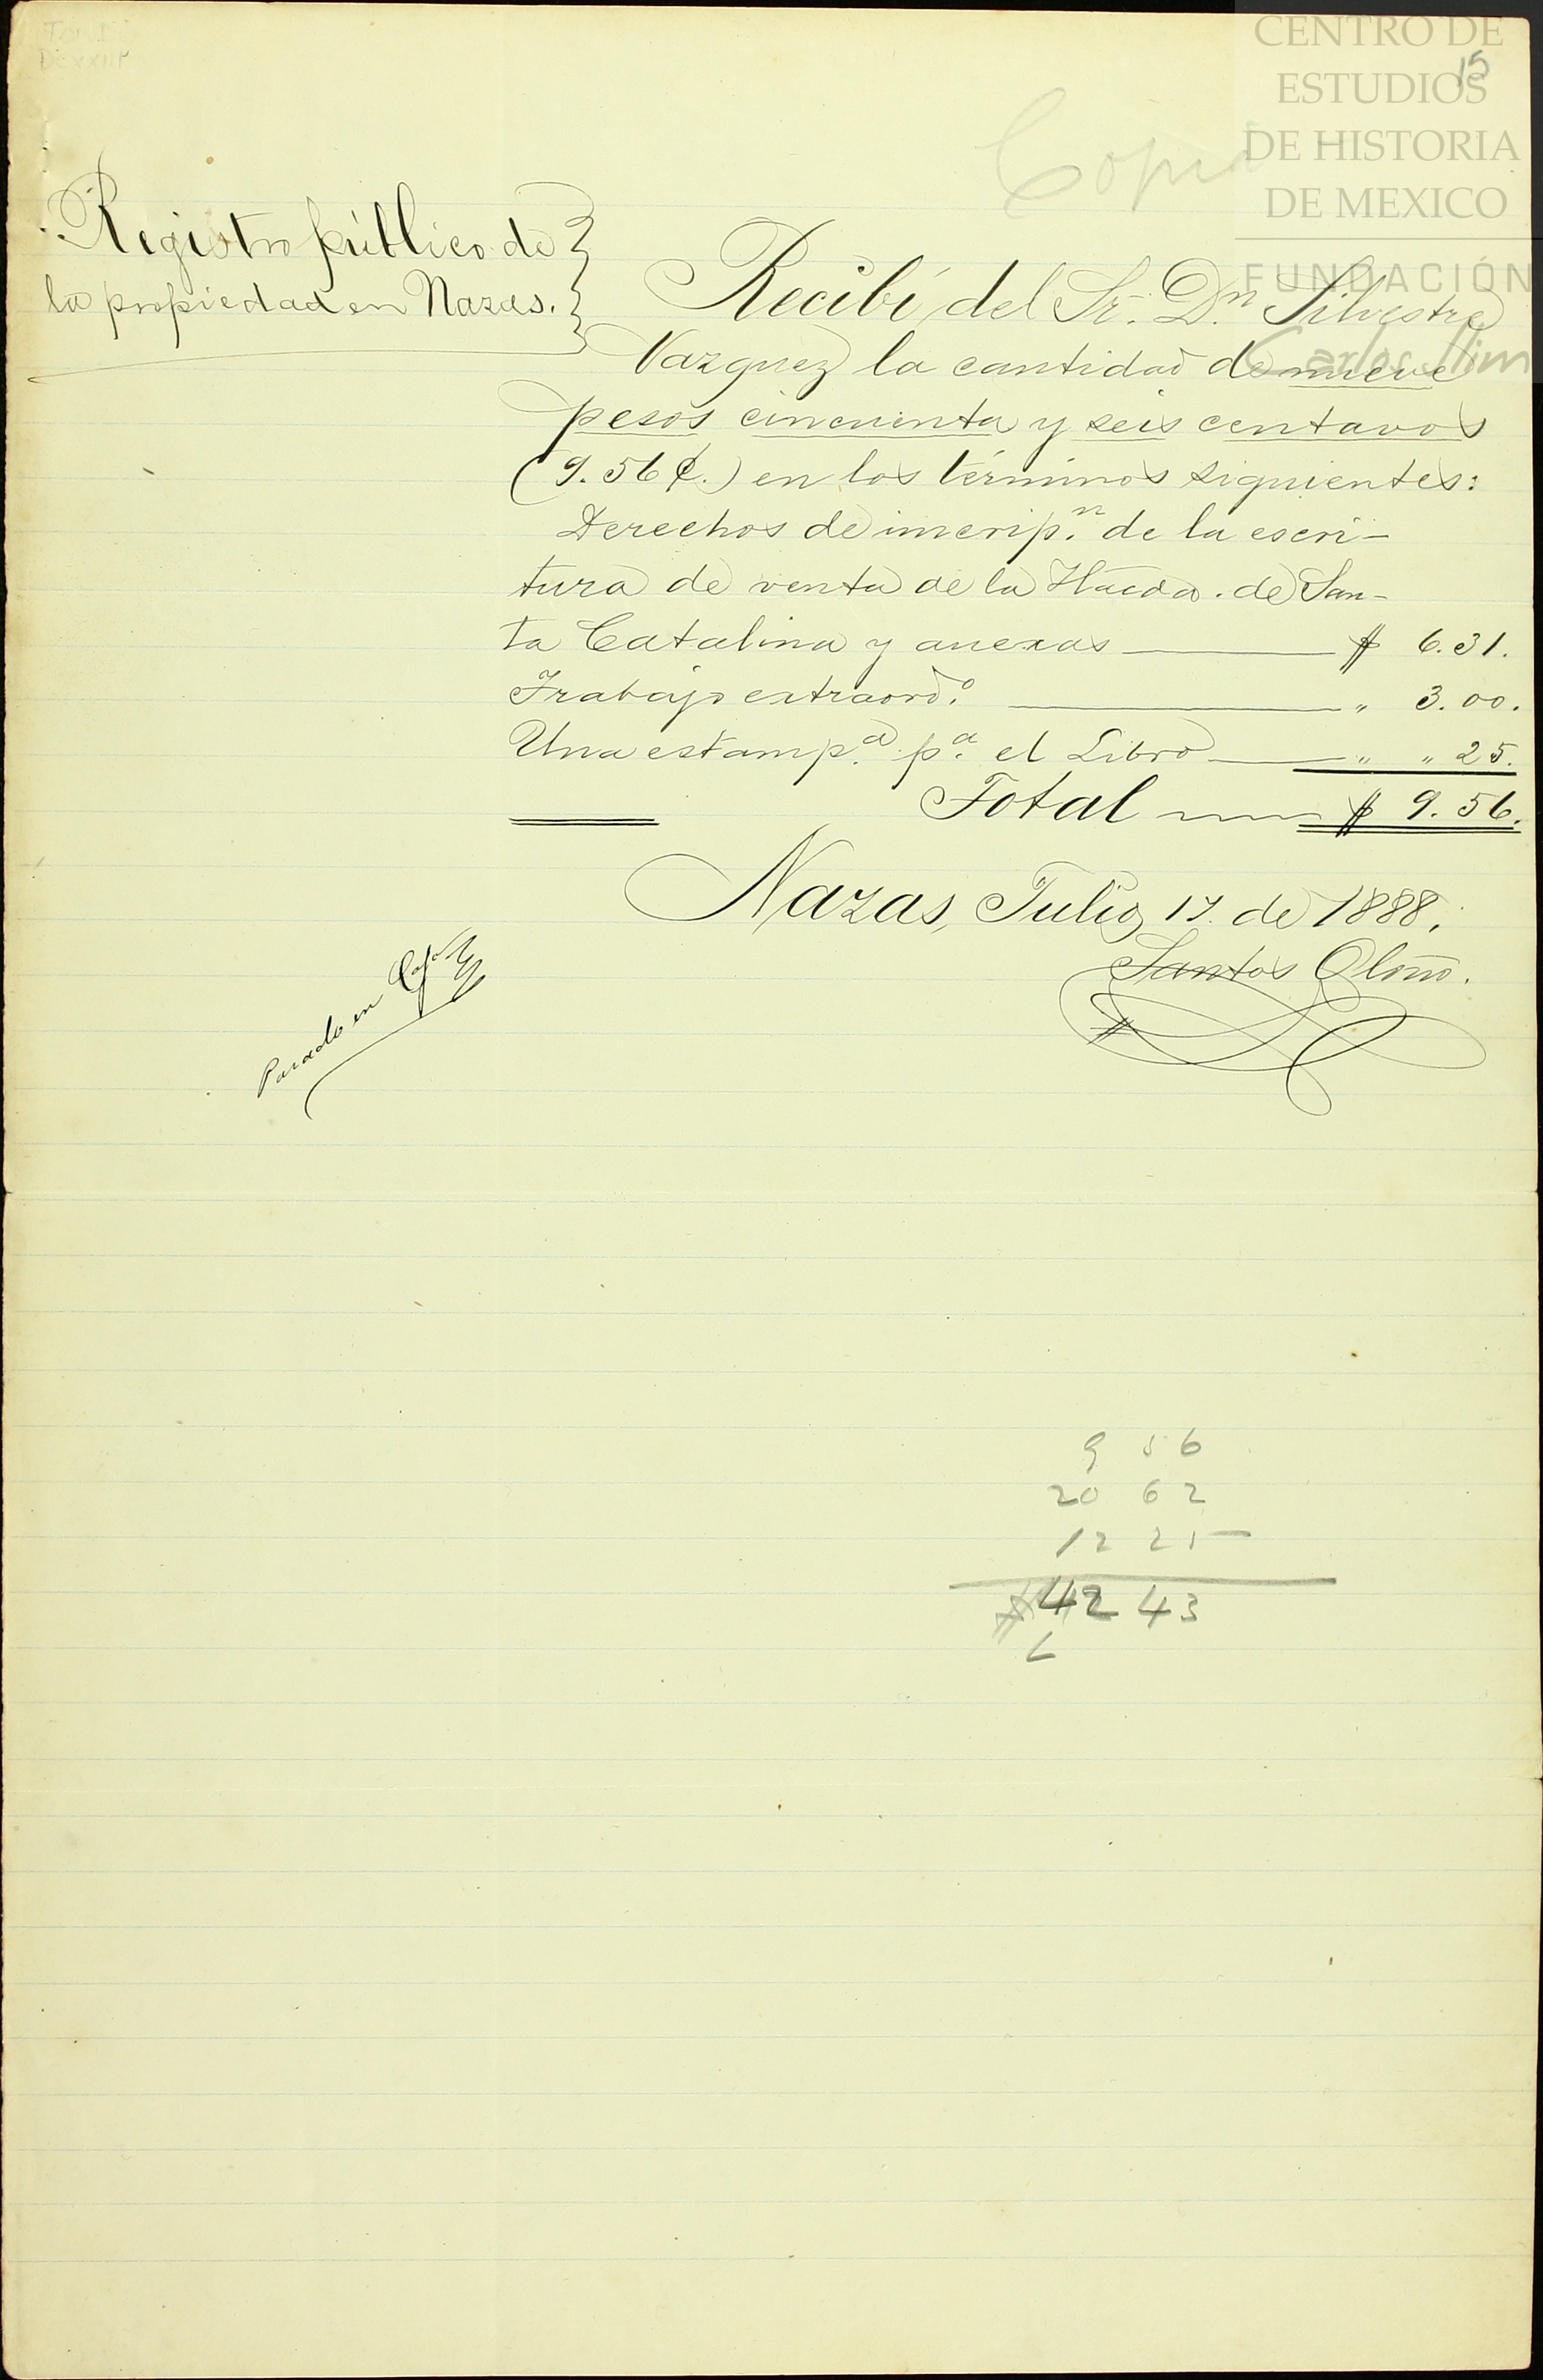 CENTRO DE
ESTUDIOS
DE HISTORIA
DE MEXICO
FUNDACIÓN
Carlos Slim
15
Copia
Registro público de
la propiedad en Nazas.
Recibí del Sr. Dn. Silvestre
Vazquez la cantidad de nueve
pesos cincuenta y seis centavos
(9.56 ¢.) en los términos siguientes:
Derechos de inscrip.n de la escri-
tura de venta de la Hacda. de San-
ta Catalina y anexas $ 6.31.
Trabajo extraord.o " 3.00.
Una estamp.a p.a el Libro " " 25.
Total $ 9.56.
Nazas, Julio 17. de 1888.
Santos
Pasado en
9 56
20 62
12 25
$ 42 43